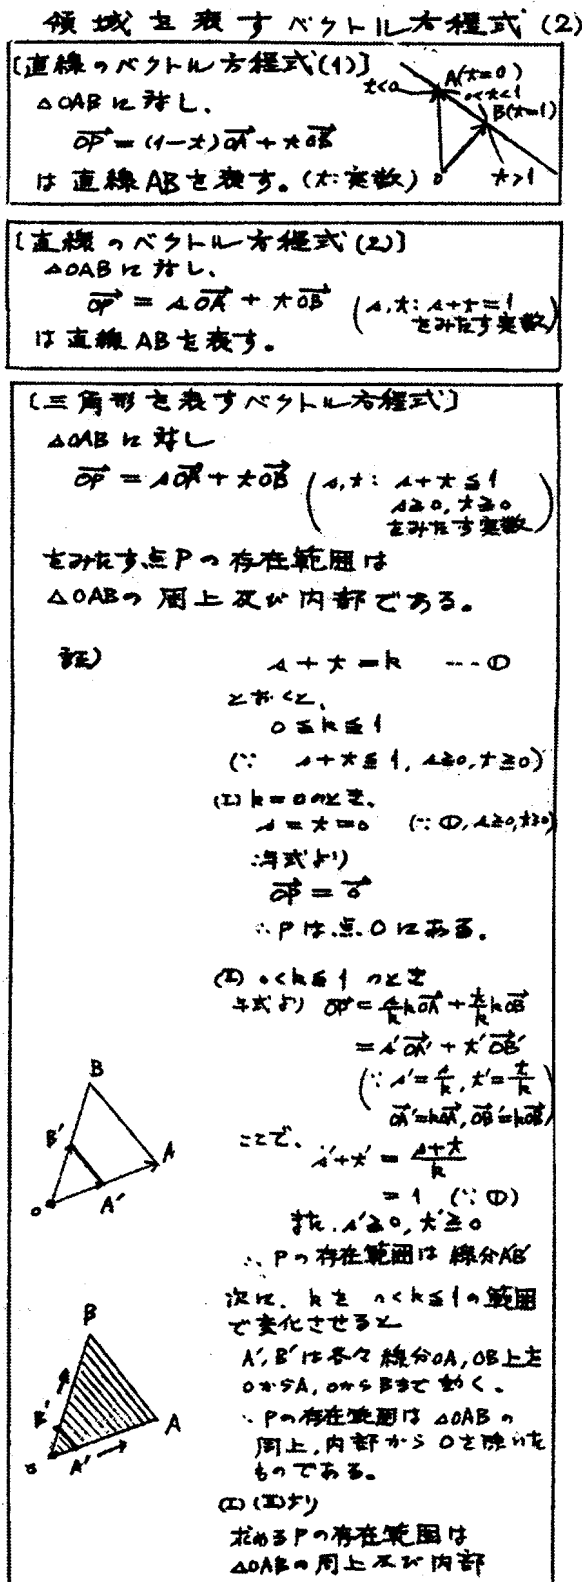 領域を表すベクトル方程式(2)
[直線のベクトル方程式(1)]
△OABに対し、
OP = (1-t)OA + tOB
は直線ABを表す。(t:実数)
t<0
A(t=0)
0<t<1
B(t=1)
t>1
O
[直線のベクトル方程式(2)]
△OABに対し、
OP = sOA + tOB (s,t: s+t=1
をみたす実数)
は直線ABを表す。
[三角形を表すベクトル方程式]
△OABに対し
OP = sOA + tOB (s,t: s+t≦1
s≧0, t≧0
をみたす実数)
をみたす点Pの存在範囲は
△OABの周上及び内部である。
証)
s+t=k ---①
とおくと、
0≦k≦1
(∵ s+t≦1, s≧0, t≧0)
(I) k=0のとき、
s=t=0 (∵①, s≧0, t≧0)
与式より
OP = 0
∴Pは点Oにある。
(II) 0<k≦1のとき
与式より OP = s/k kOA + t/k kOB
= s'OA' + t'OB'
(∵ s'=s/k, t'=t/k
OA'=kOA, OB'=kOB)
ここで、s'+t' = (s+t)/k
= 1 (∵①)
また、s'≧0, t'≧0
∴Pの存在範囲は線分A'B'
B
B'
A
O
A'
次に、kを0<k≦1の範囲
で変化させると
A', B'は各々線分OA, OB上を
OからA, OからBまで動く。
∴Pの存在範囲は△OABの
周上, 内部からOを除いた
ものである。
B
B'
A
O
A'
(I)(II)より
求めるPの存在範囲は
△OABの周上及び内部